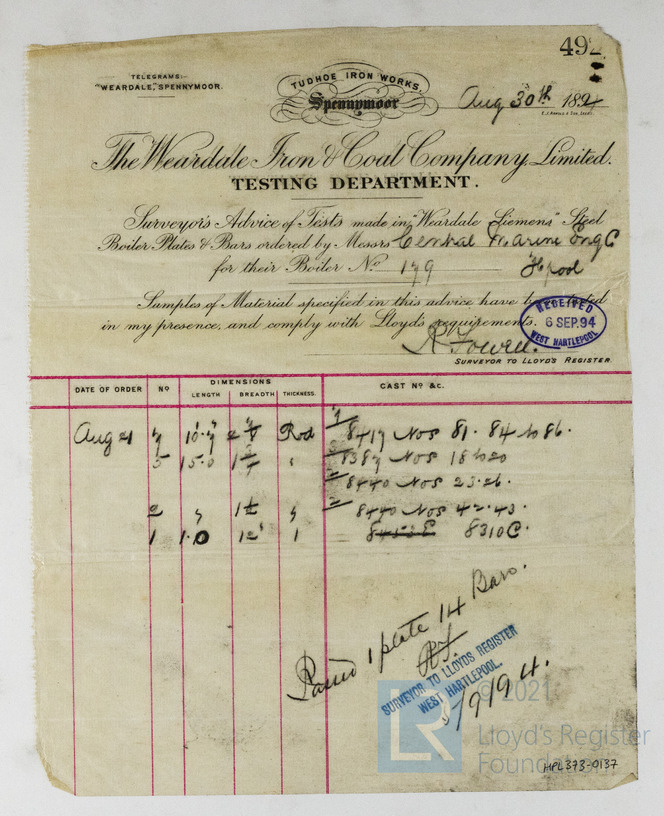 TELEGRAMS:-
"WEARDALE," SPENNYMOOR.
TUDHOE IRON WORKS.
Spennymoor
Aug 30th 1894
The Weardale Iron & Coal Company Limited.
TESTING DEPARTMENT.
Surveyor's Advice of Tests made in "Weardale Siemens" Steel
Boiler Plates & Bars ordered by Messrs Central Marine Eng Co
for their Boiler No 179 H'pool
Samples of Material specified in this advice have been tested
in my presence, and comply with Lloyd's requirements.
RECEIVED
6 SEP. 94
WEST HARTLEPOOL
R. Fowell.
SURVEYOR TO LLOYD'S REGISTER
DATE OF ORDER No DIMENSIONS CAST No &c.
LENGTH BREADTH THICKNESS.
Aug 21 Rod 8417 Nos 81. 84 to 86.
5 15.0 8387 Nos 18 to 20
8440 Nos 23.26.
2 8440 Nos 42.43.
1 1.0 8310C.
Passed 1 plate 14 Bars.
R.F.
SURVEYOR TO LLOYDS REGISTER
WEST HARTLEPOOL.
© 2021
LR
Lloyd's Register
Foundation
HPL373-0137